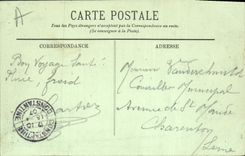 CARTE POSTALE
Tous les Pays étrangers n'acceptent pas la Correspondance au recto.
(Se renseigner à la Poste)
CORRESPONDANCE
ADRESSE
Bon Voyage Santé
froid
Monsieur
Conseiller Municipal
Avenue de St Mandé
Charenton
Seine
CONSTANTINE